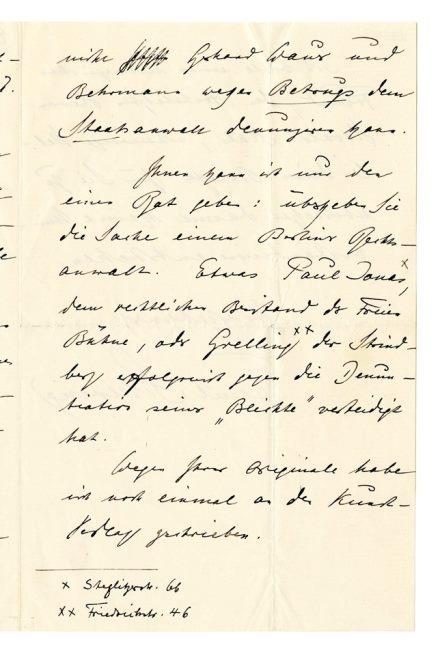 nicht Gerhard Claus und
Behrmann wegen Betrugs dem
Staatsanwalt denunzieren kann.
Ihnen kann ich nur den
einen Rat geben: übergeben Sie
die Sache einem Berliner Rechts-
anwalt. Etwas Paul Jonas x,
dem rechtlichen Beistand der Freien
Bühne, oder Grelling xx der Strind-
berg erfolgreich gegen die Denun-
tiation seiner „Beichte" verteidigt
hat.
Wegen Ihrer Originale habe
ich noch einmal an den Kunst-
Verlag geschrieben.
x Steglitzerstr. 66
xx Friedrichstr. 46